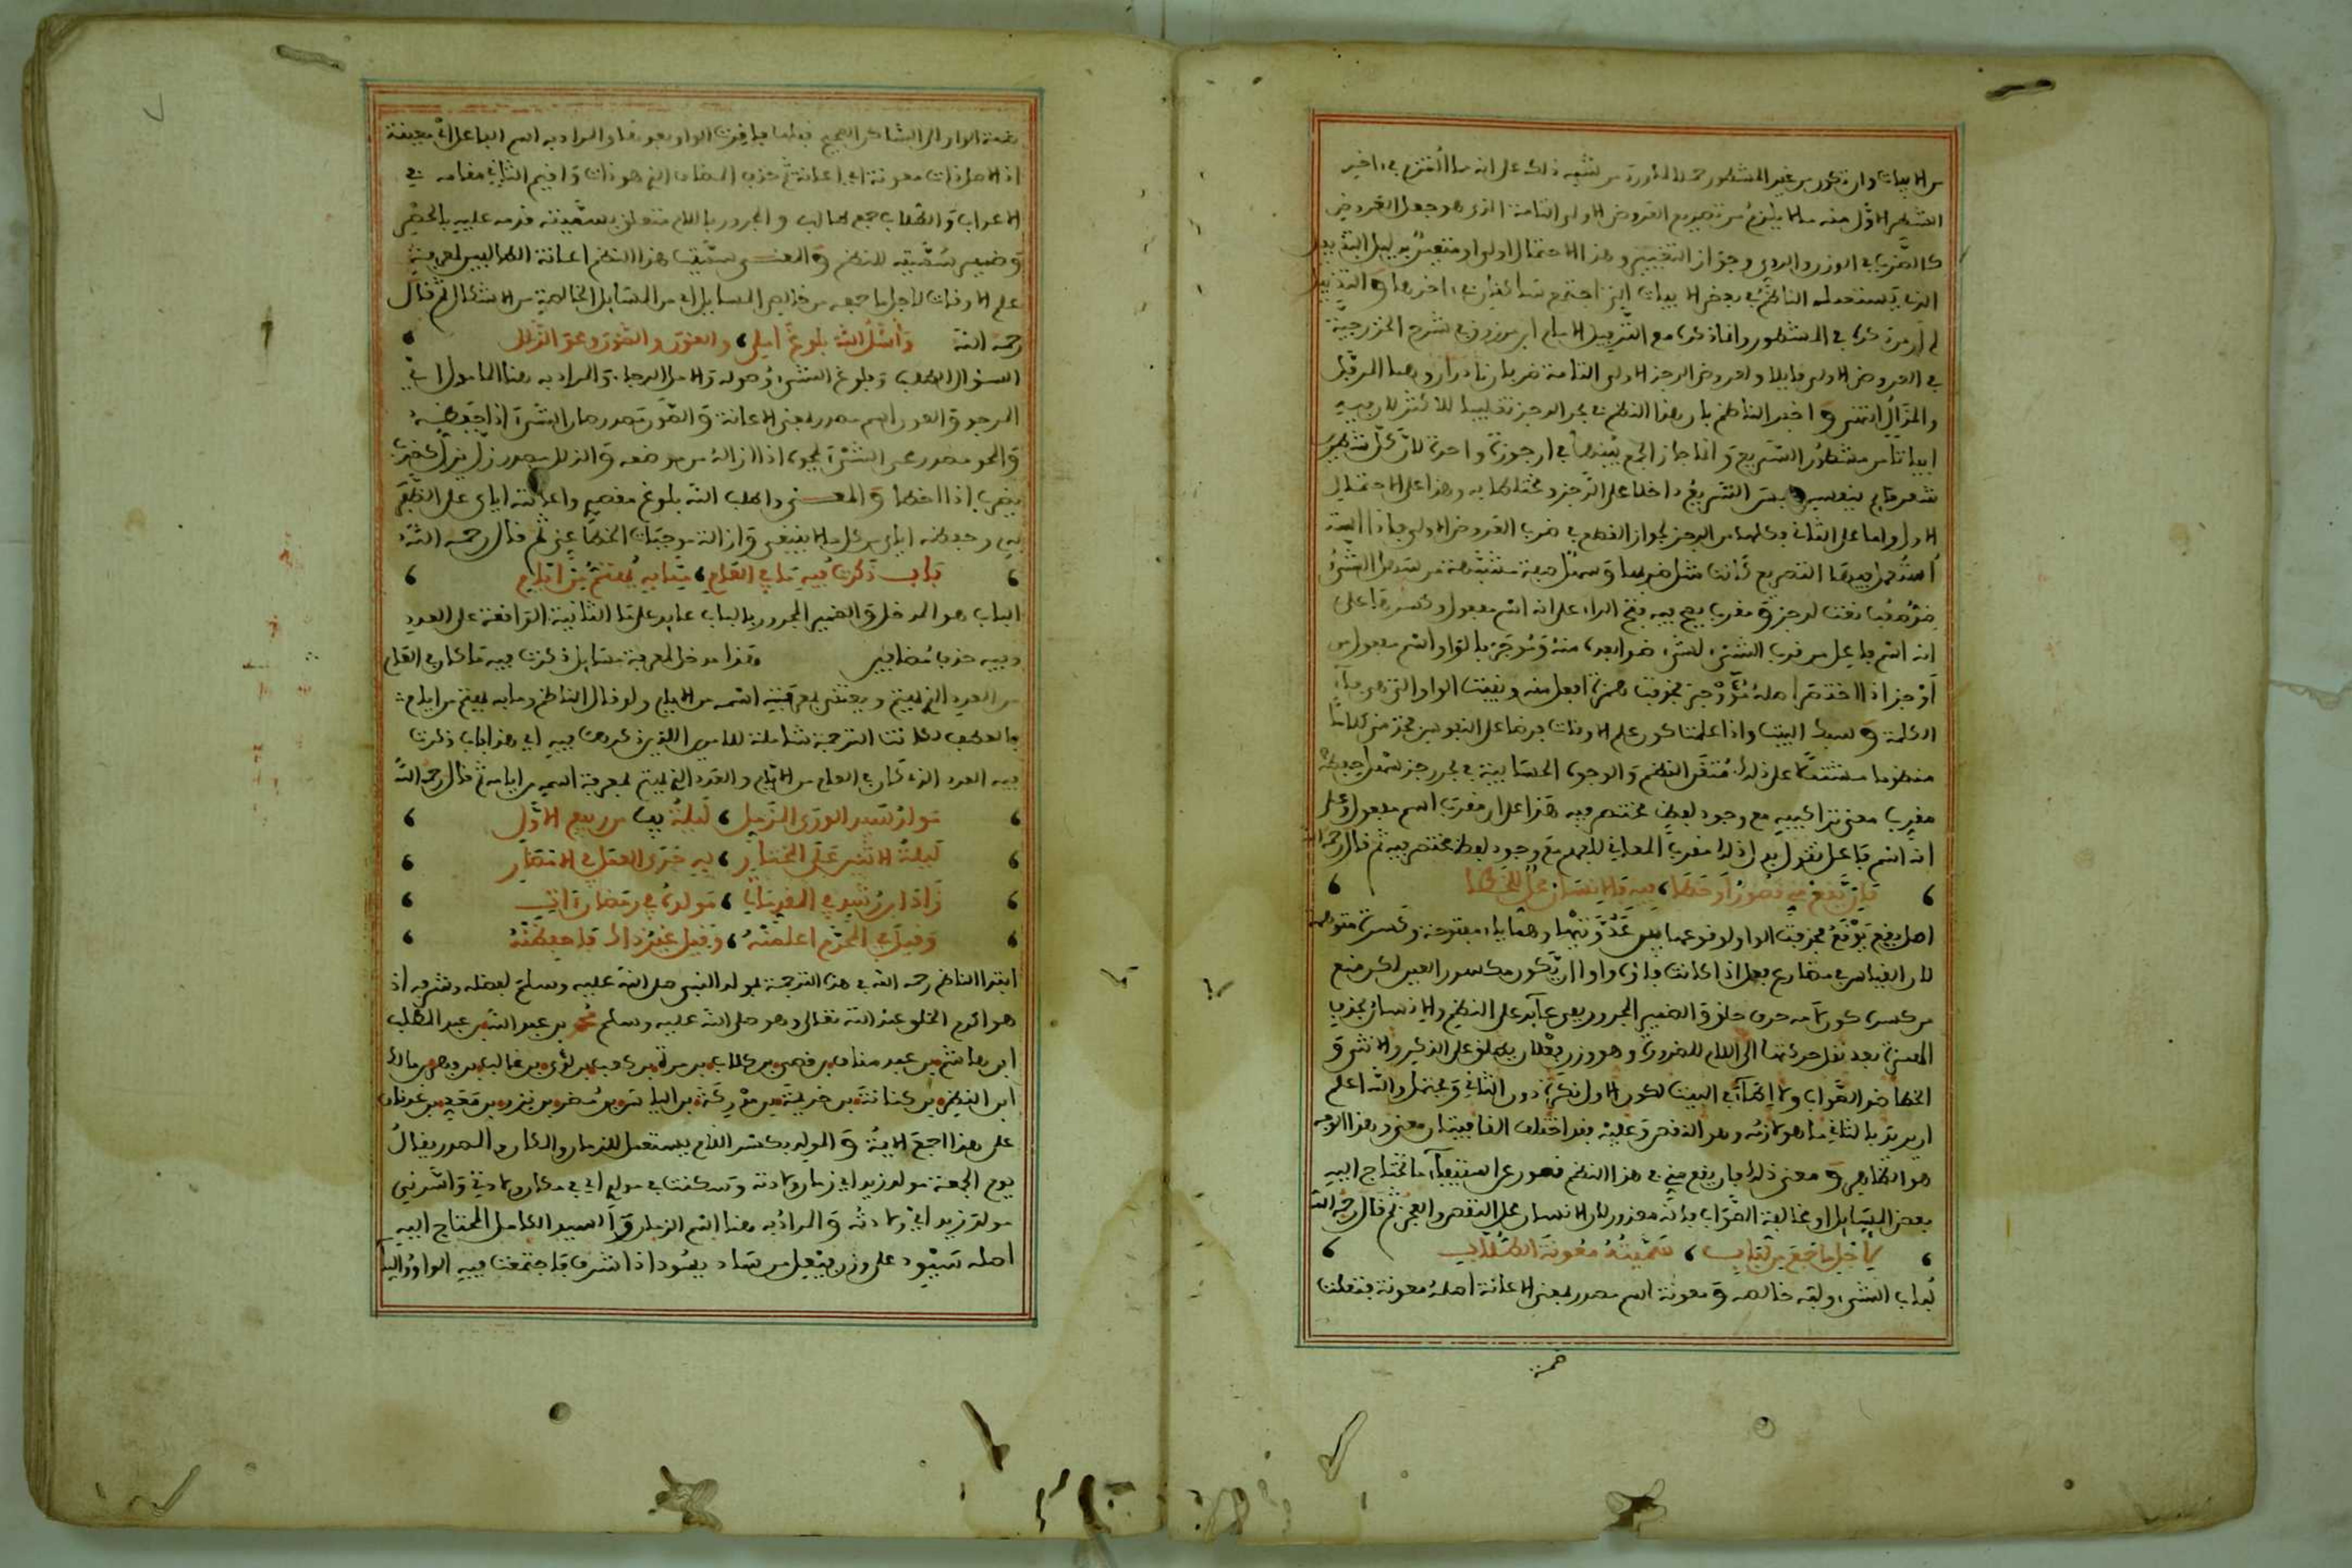 من الابيات وان تكون من غير المشطور حملا للأوزان من نشبه ذلك على انه ما التزم في اخير
الشطر الاول منه ما يلزم من تصريع العروض الاولى التامة الذي هو جعل العروض
كالضرب في الوزن والروي وجواز التغيير وهذا الاحتمال اولى او متعين بدليل التذييل
الذي يستعمله الناظم في بعض الابيات التي اجتمع ساكنان في اخرها والتذييل
لم ار من ذكره في المشطور وانما ذكره مع الترفيل الامام ابن مرزوق في شرح الخزرجية
في العروض الاولى قايلا ولعروض الرجز الاولى التامة ضربان نادران وهما المرفل
والمذال انتهى واخبر الناظم بان هذا النظم في بحر الرجز تغليبا للاكثر لان فيه
ابياتا من مشطور السريع وانما جاز الجمع بينهما في ارجوزة واحدة لان كل شطر
شعر قايم بنفسه السريع داخلا على الرجز ومختلطا به وهذا على الاحتمال
الاول واما على الثاني فكلها من الرجز لجواز القطع في ضرب العروض الاولى فاذا
استعمل فيها التصريع كانت مثل ضربها وسهل صفة مشبهة من سهل الشيء
ضد صعب نعت لرجز ومقرب يصح فيه فتح الراء على انه اسم مفعول وكسرها على
انه اسم فاعل من قرب الشيء لشيء ضد ابعده منه وموجز بالواو اسم مفعول من
أوجز اذا اختصر اصله مؤوجز فحذفت همزة افعل منه وبقيت الواو التي هي فاء
الكلمة وسبك البيت واذا علمت كون علم الاوقات فرضا على النفوس فخذ مني كلاما
منظوما مشتملا على ذلك متقن النظم والوجوه الحسابية في بحر رجز سهل حفظه
مقرب معنى تراكيبه مع وجود لفظ مختصر فيه هذا على ان مقرب اسم مفعول وعلى
انه اسم فاعل تقول بدل ذلك مقرب المعاني للفهم مع وجود لفظ مختصر فيه ثم قال رحمه الله
فان يقع فيه قصور او خطا، فيه فالانسان محل للخطا
اصل يقع يوقع فحذفت الواو لوقوعها بين عدوتيها وهما ياء مفتوحة وكسرة متوهمة
لان القياس في مضارع فعل اذا كانت فاؤه واوا ان يكون مكسور العين لكن منع
من كسره كون لامه حرف حلق والضمير المجرور بفي عايد على النظم والانسان بحذف
الهمزة بعد نقل حركتها الى اللام للضرورة وهو وزن فعلان يطلق على الذكر والانثى و
الخطا ضد الصواب ولا ايطاء في البيت لكون الاول نكرة دون الثاني ويحتمل والله اعلم
ان يريد بالثاني ما هو لازمه وهو النقص وعليه فقد اختلف القافيتان معنى وهذا الوجه
هو الظاهر ومعنى ذلك فان يقع مني في هذا النظم قصور عن استيفاء ما تحتاج اليه
بعض المسايل او مخالفة الصواب فانه معذور لان الانسان محل النقص والعجز ثم قال رحمه الله
لاجل ما جمع من لباب، سميته معونة الطلاب
لباب الشيء ولبه خالصه ومعونة اسم مصدر بمعنى الاعانة اصله معونة فنقلت
ضمة الواو الى الساكن الصحيح قبلها فبقيت الواو بعدها والمراد به اسم الفاعل أي معينة
اذ الاصل ذات معونة اي اعانة ثم حذف المضاف الذي هو ذات واقيم الثاني مقامه في
الاعراب والطلاب جمع طالب والمجرور باللام متعلق بسميته قدمه عليه بالحصر
وضمير سميته للنظم والمعنى سميت هذا النظم اعانة الطالبين لمعرفة
علم الاوقات لاجل ما جمعه من خالص المسايل اي من المسايل الخالصة من الاشكال ثم قال
رحمه الله وأسأل الله بلوغ املي، والعون والصون ومحو الزلل
السؤال الطلب وبلوغ الشيء وصوله والامل الرجاء والمراد به هنا المامول اي
المرجو والعون اسم مصدر بمعنى الاعانة والصون مصدر صان الشيء اذا حفظه
والمحو مصدر محى الشيء يمحوه اذا ازاله من موضعه والزلل مصدر زل يزل كضرب
يضرب اذا اخطا والمعنى واطلب الله بلوغ مقصدي واعانته اياي على النظم
لي وحفظه اياي من كل ما لا ينبغي وازالة موجبات الخطا عني ثم قال رحمه الله
باب ذكرت فيه ما في العام، وما به يفتتح من ايام
الباب هو المدخل والضمير المجرور بالباب عايد على ما الثانية الواقعة على العدد
وفيه حذف مضافين وهذا مدخل لمعرفة مسايل ذكرت فيه ما كان في العام
من العدد الذي يعني ويعتني بمعرفته اسمه من الايام ولو قال الناظم وما به يعني من ايام
بالعطف لكانت الترجمة شاملة للامرين اللذين ذكرهما فيه اي هذا باب ذكرت
فيه العدد الذي كان في العام من الايام والعدد الذي يعني بمعرفة اسمه من ايامه ثم قال رحمه الله
مولد سيد الورى المزمل، ليلة يب من ربيع الاول
ليلة الاثنين على المختار، فيه جرى العمل في الامصار
زاد ابن رشد في المقدمات، مولده في رمضان آت
وقيل في المحرم اعلمنه، وقيل غير ذاك فاحفظنه
ابتدا الناظم رحمه الله في هذه الترجمة بمولد النبي صلى الله عليه وسلم لفضله وشرفه اذ
هو اكرم الخلق عند الله تعالى وهو صلى الله عليه وسلم محمد بن عبد الله بن عبد المطلب
ابن هاشم بن عبد مناف بن قصي بن كلاب بن مرة بن كعب بن لؤي بن غالب بن فهر بن مالك
ابن النضر بن كنانة بن خزيمة بن مدركة بن الياس بن مضر بن نزار بن معد بن عدنان
على هذا اجمع الأيمة والمولد بكسر اللام يستعمل للزمان والمكان والمصدر يقال
يوم الجمعة مولد زيد اي زمان ولادته وسكنت في مولدي اي في مكان ولادتي واسرني
مولد زيد اي ولادته والمراد به هنا اسم الزمان والسيد الكامل المحتاج اليه
اصله سيود على وزن فيعل من ساد يسود اذا شرف فاجتمعت فيه الواو والياء